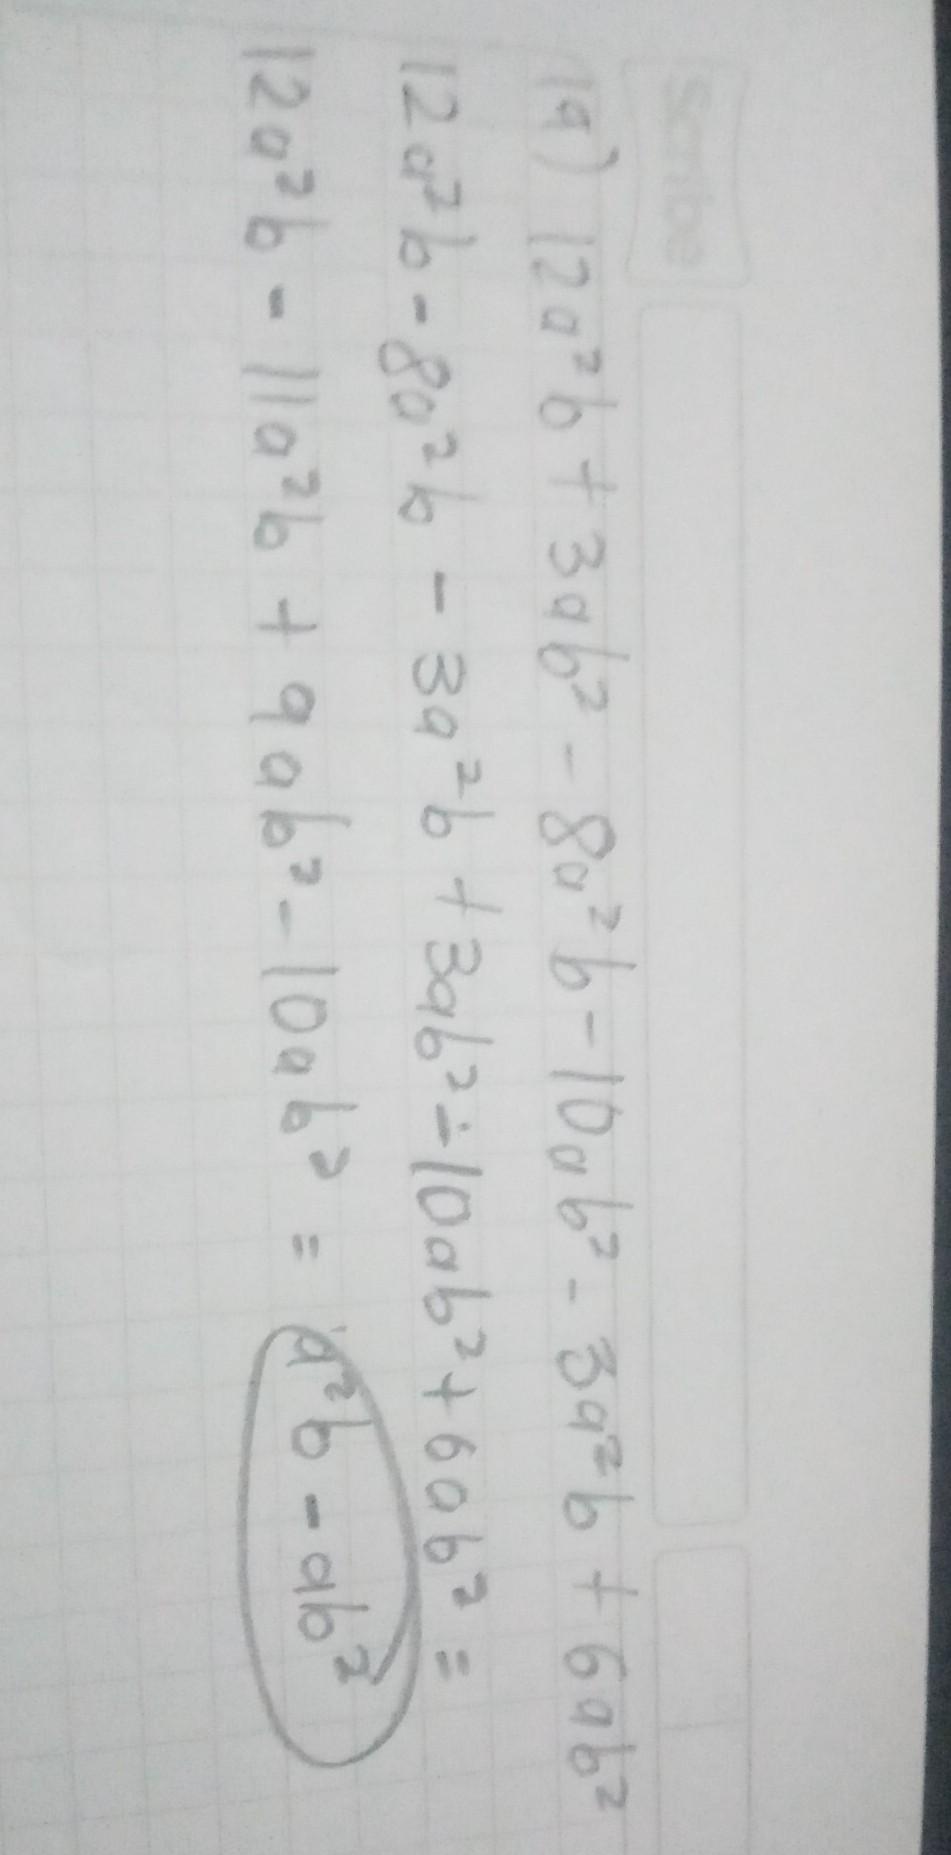 Scribe
19) 12a²b + 3ab² - 8a²b - 10ab² - 3a²b + 6ab²
12a²b - 8a²b - 3a²b + 3ab² - 10ab² + 6ab² =
12a²b - 11a²b + 9ab² - 10ab² = a²b - ab²